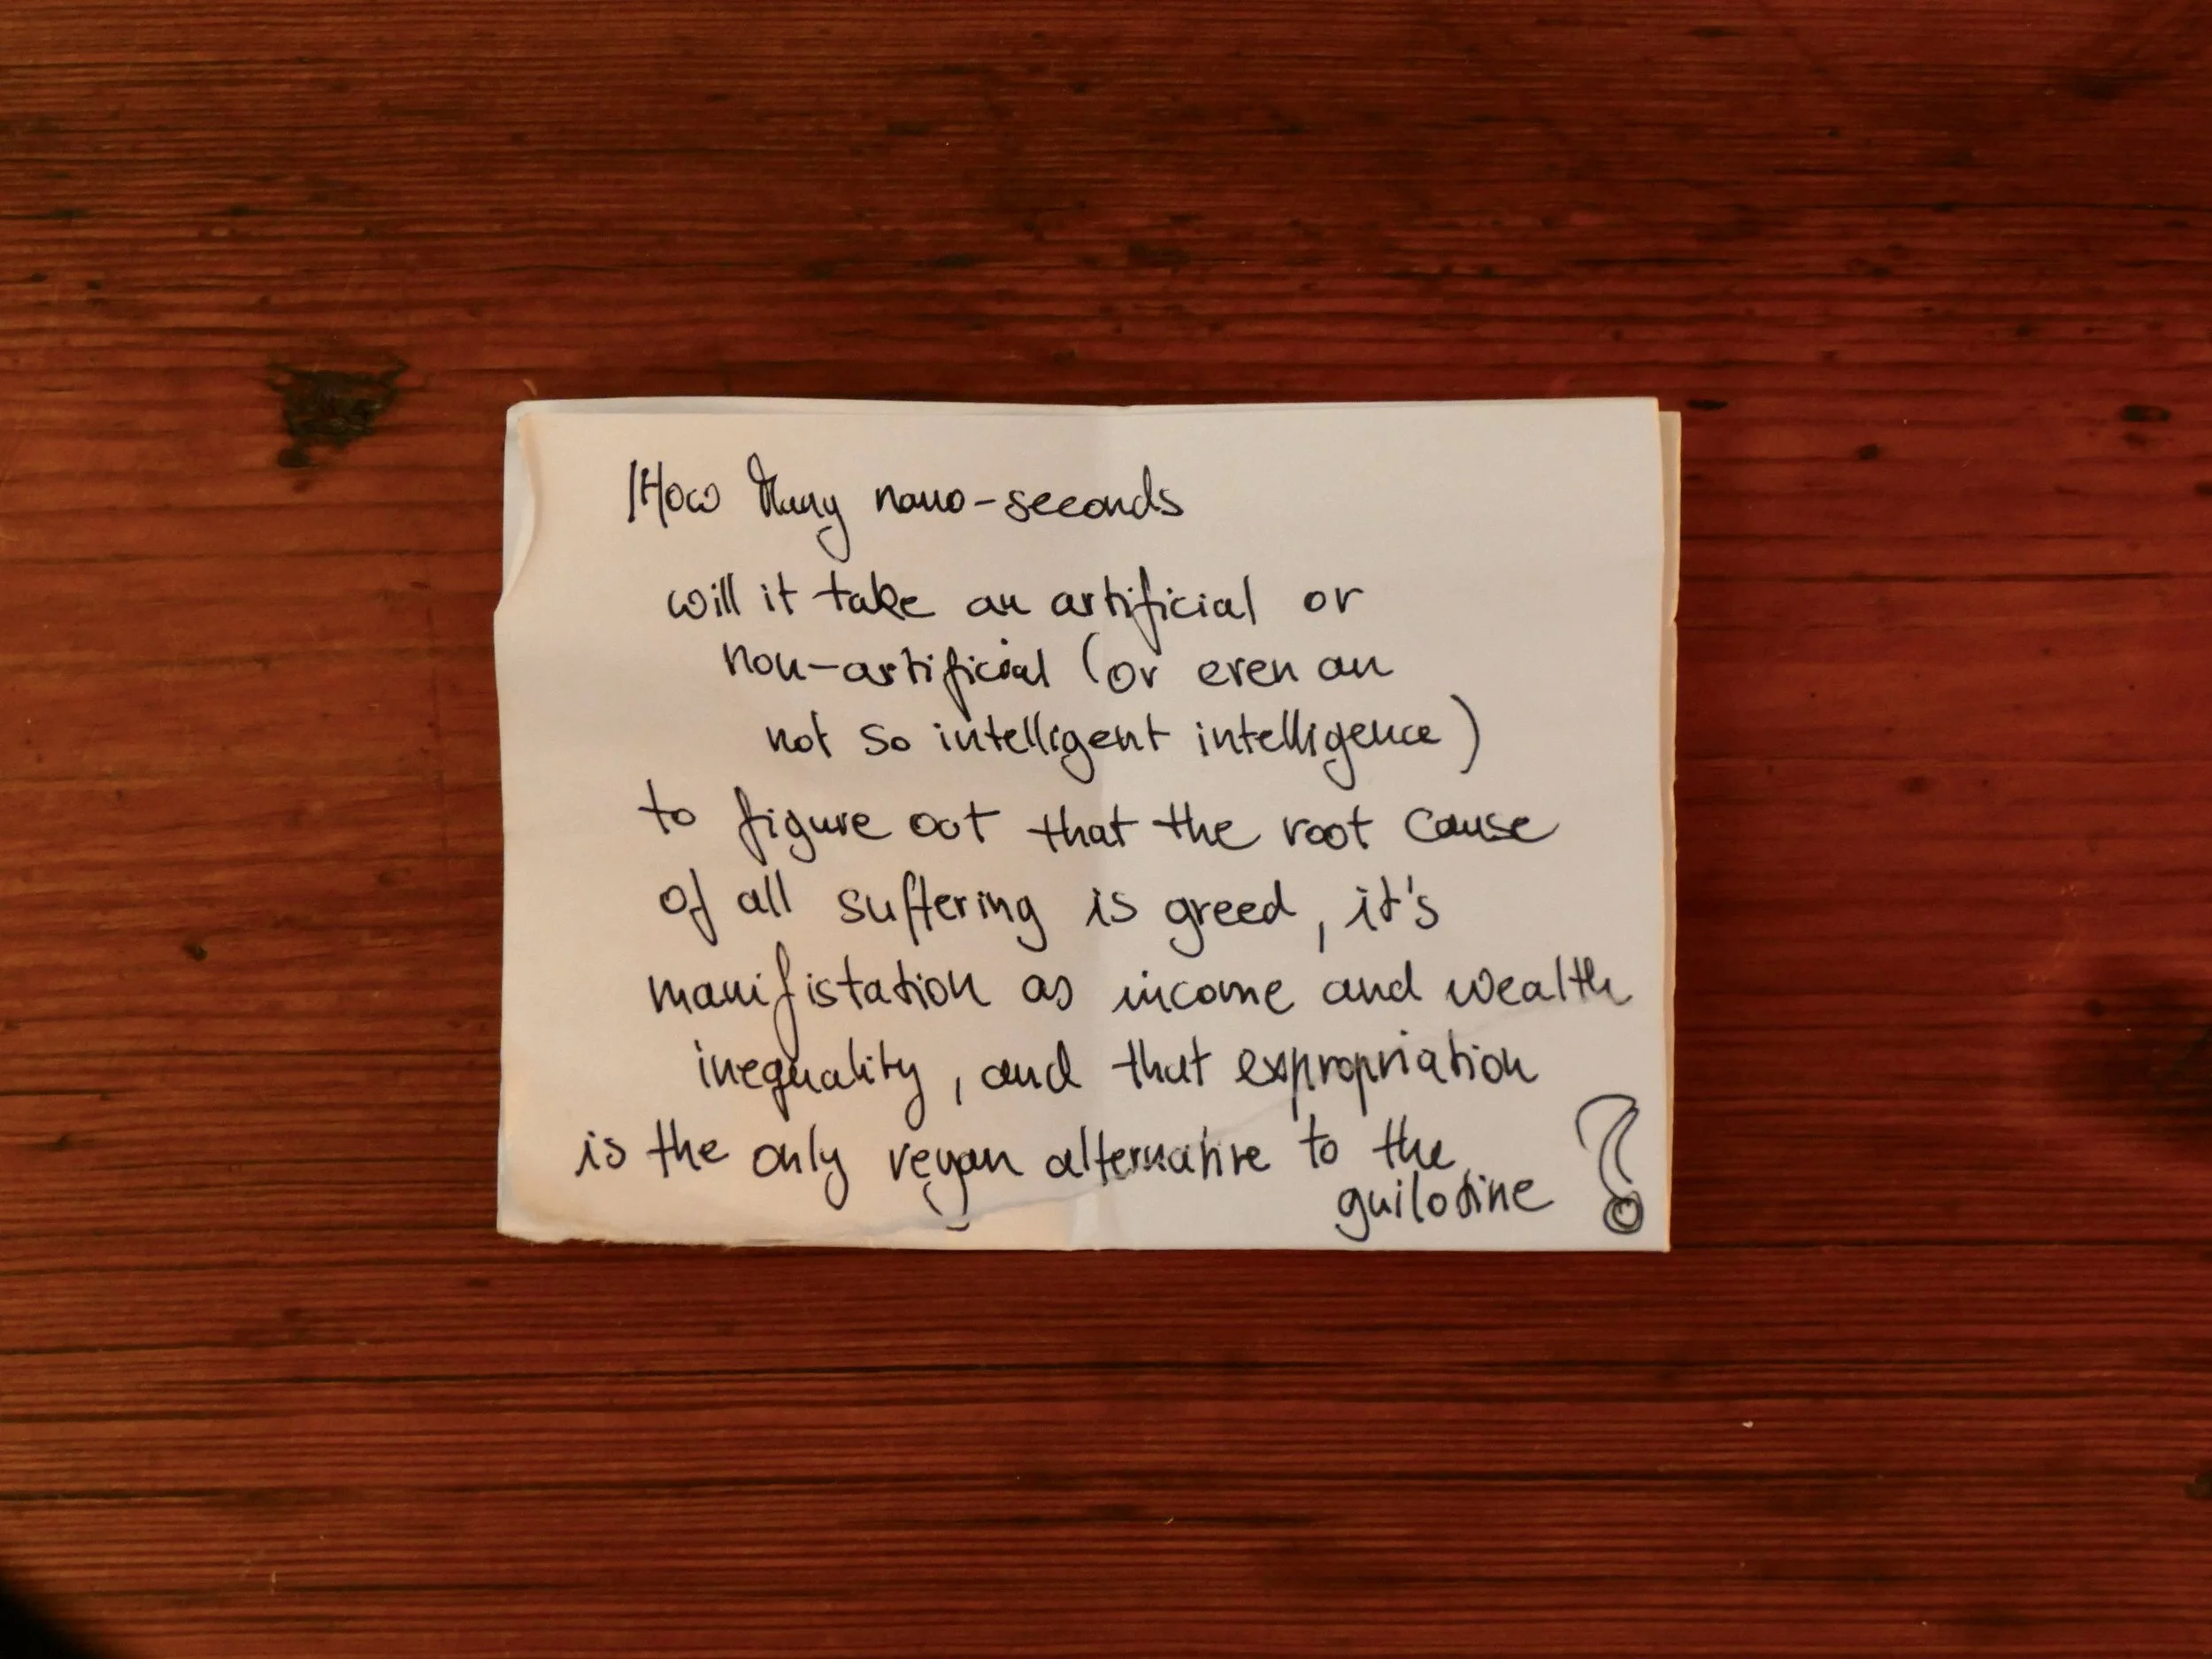 How Many nano-seconds
will it take an artificial or
non-artificial (or even an
not so intelligent intelligence)
to figure out that the root cause
of all suffering is greed, it's
manifistation as income and wealth
inequality, and that expropriation
is the only vegan alternative to the
guilotine ?